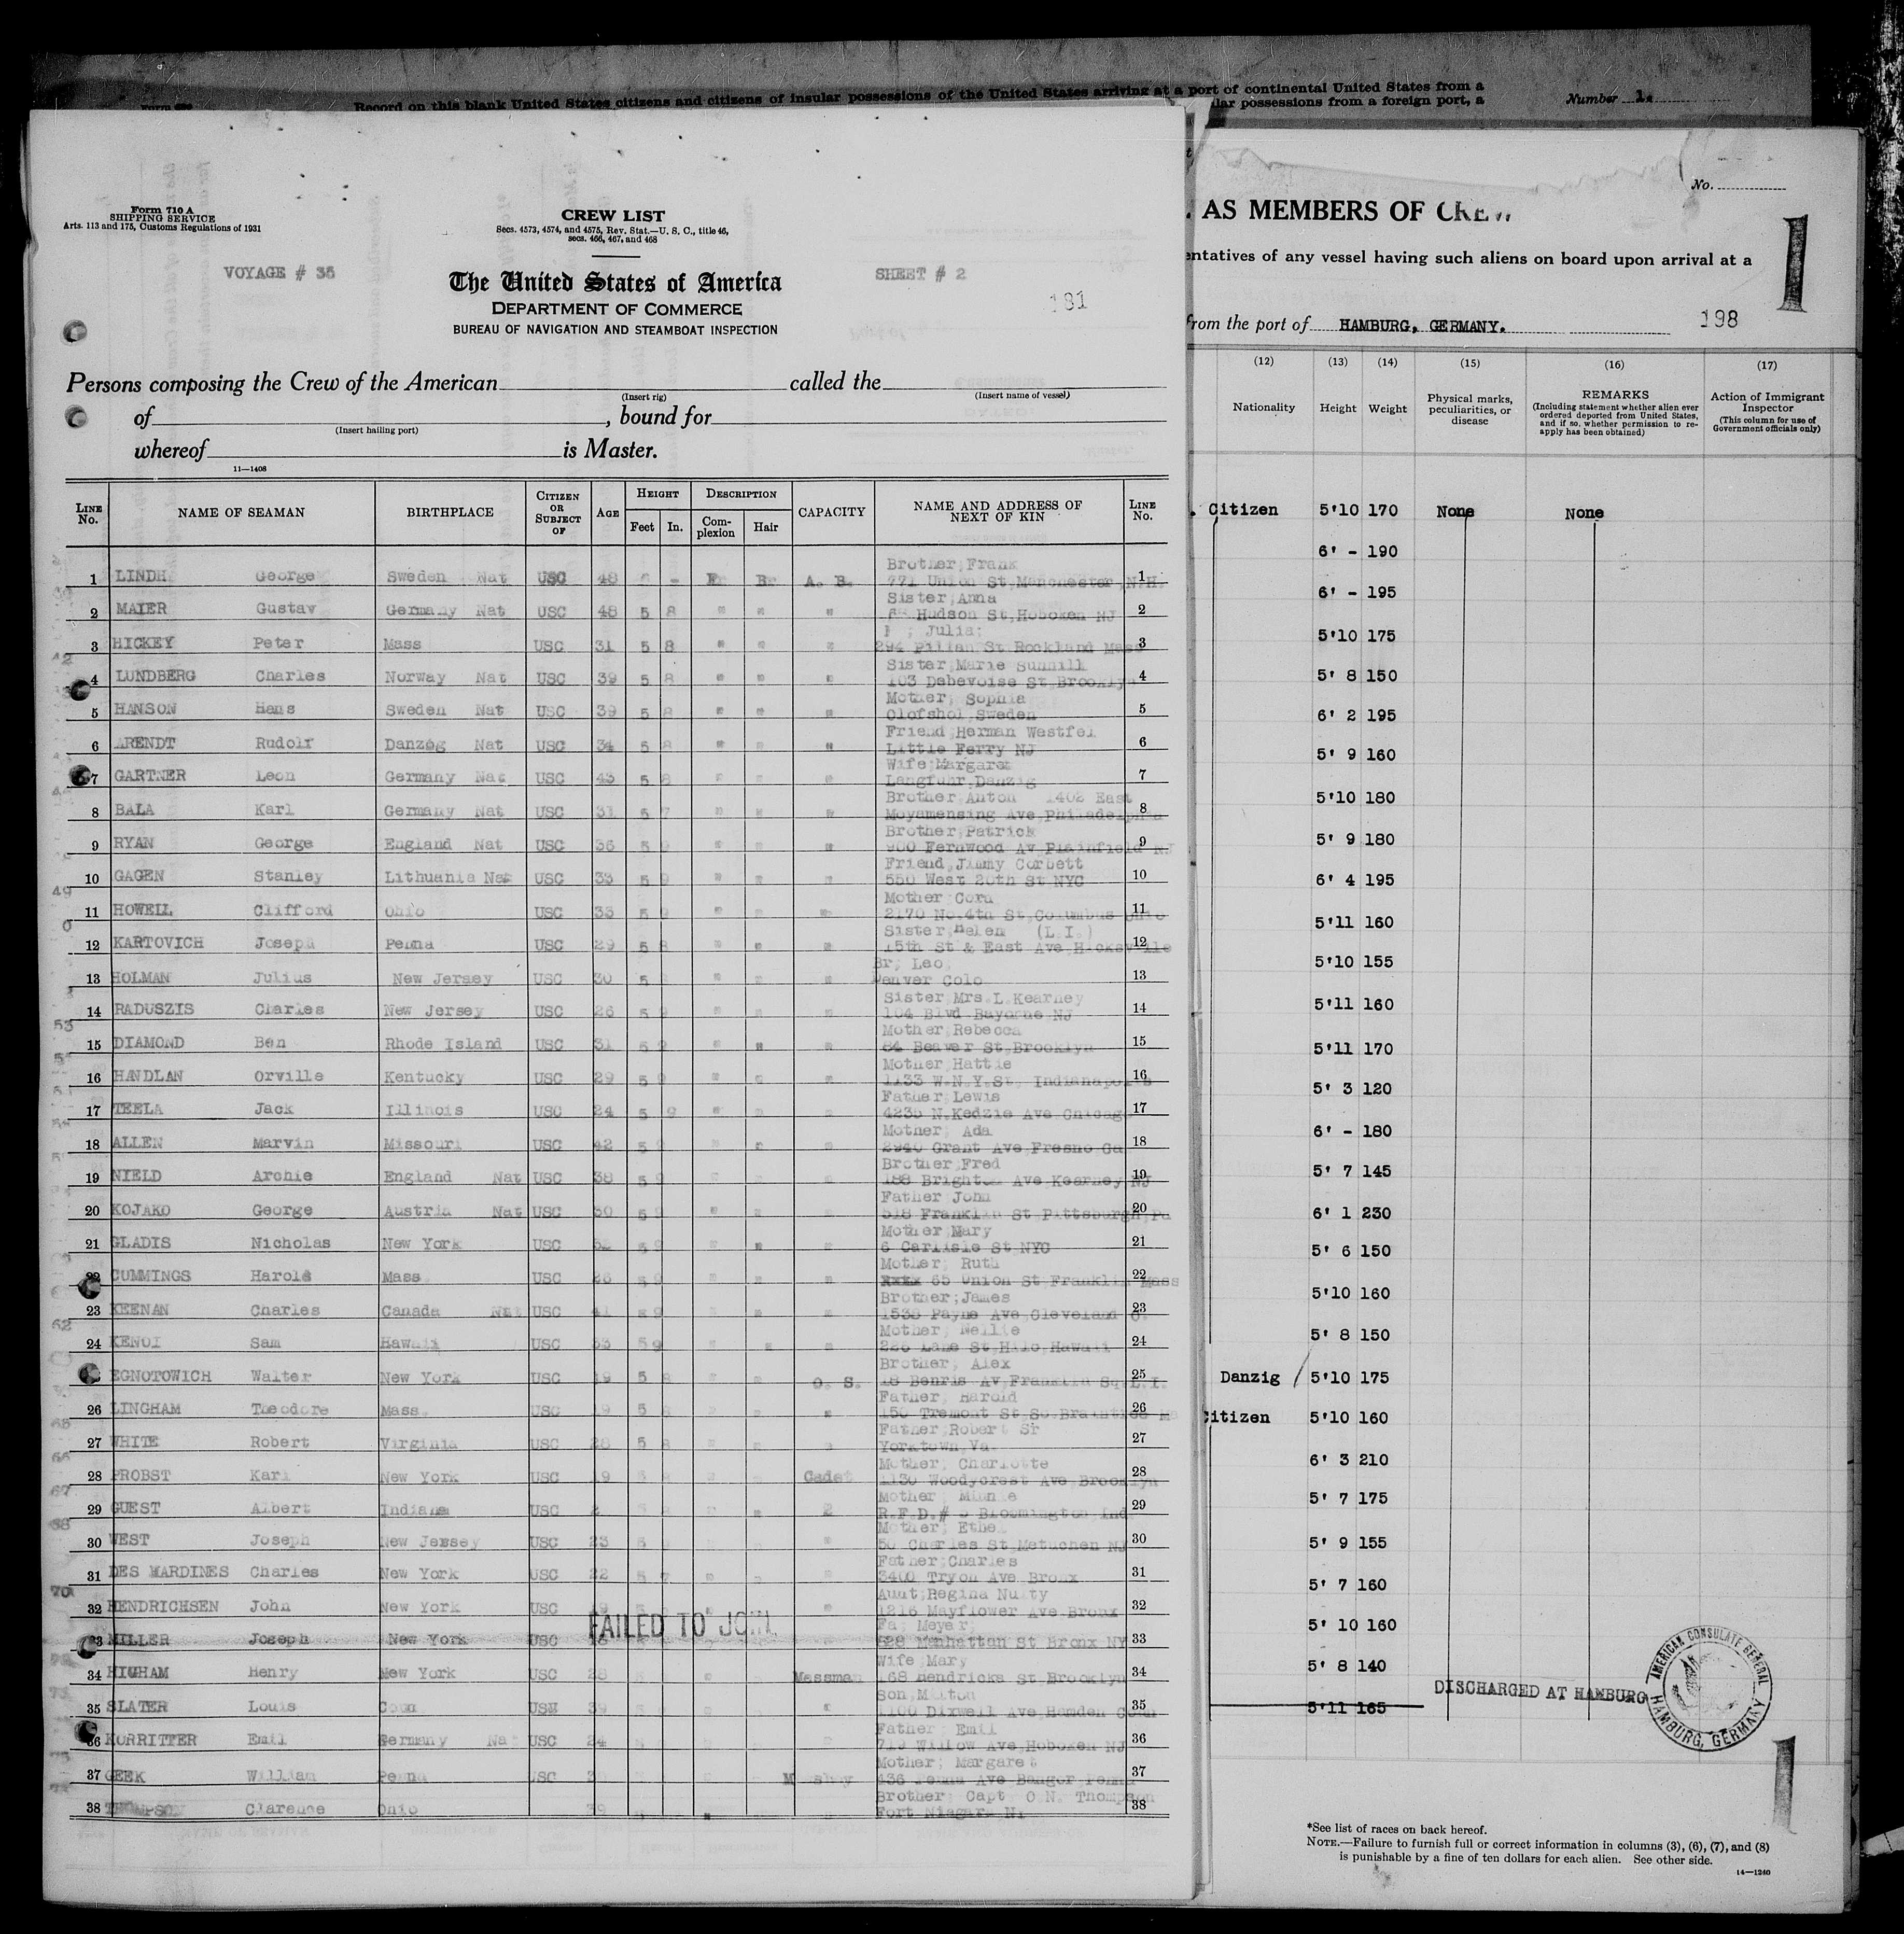 Record on this blank United States citizens and citizens of insular possessions of the United States arriving at a port of continental United States from a
lar possessions from a foreign port, a
Number 1
Form 710 A
SHIPPING SERVICE
Arts. 113 and 175, Customs Regulations of 1931
CREW LIST
Secs. 4573, 4574, and 4575, Rev. Stat.—U. S. C., title 46,
secs. 466, 467, and 468
VOYAGE # 35
The United States of America
SHEET # 2
DEPARTMENT OF COMMERCE
181
BUREAU OF NAVIGATION AND STEAMBOAT INSPECTION
Persons composing the Crew of the American called the
(Insert rig) (Insert name of vessel)
of , bound for
(Insert hailing port)
whereof is Master.
11—1408
LINE No. NAME OF SEAMAN BIRTHPLACE CITIZEN OR SUBJECT OF AGE HEIGHT Feet In. DESCRIPTION Complexion Hair CAPACITY NAME AND ADDRESS OF NEXT OF KIN LINE No.
Brother, Frank
1 LINDH George Sweden Nat USC 48 - Br A. B. 771 Union St, Manchester, N.H. 1
Sister, Anna
2 MAIER Gustav Germany Nat USC 48 5 8 " " " Hudson St, Hoboken NJ 2
; Julia;
3 HICKEY Peter Mass USC 31 5 8 " " " 294 St Rockland Mass 3
Sister, Marie Sunhill
4 LUNDBERG Charles Norway Nat USC 39 5 8 " " " 103 Debevoise St Brooklyn 4
Mother, Sophia
5 HANSON Hans Sweden Nat USC 39 5 8 " " " Olofshol, Sweden 5
Friend, Herman Westfel
6 ARENDT Rudolf Danzog Nat USC 34 5 8 " " " Little Ferry NJ 6
Wife, Margaret
7 GARTNER Leon Germany Nat USC 43 5 8 " " " Langfuhr, Danzig 7
Brother, Anton 1402 East
8 BALA Karl Germany Nat USC 31 5 7 " " " Moyamensing Ave Philadelphia 8
Brother, Patrick
9 RYAN George England Nat USC 36 5 9 " " " 900 Fernwood Av Plainfield NJ 9
Friend, Jimmy Corbett
10 GAGEN Stanley Lithuania Nat USC 33 5 9 " " " 550 West 20th St NYC 10
Mother Cora
11 HOWELL Clifford Ohio USC 33 5 9 " " " 2170 No. 4th St, Columbus Ohio 11
Sister Helen (L.I.)
12 KARTOVICH Joseph Penna USC 29 5 8 " " " 15th St & East Ave Hicksville 12
Br; Leo,
13 HOLMAN Julius New Jersey USC 30 5 8 " " " Denver Colo 13
Sister, Mrs. L. Kearney
14 RADUSZIS Charles New Jersey USC 26 5 9 " " " 104 Blvd Bayonne NJ 14
Mother, Rebecca
15 DIAMOND Ben Rhode Island USC 31 5 9 " " " 64 Beaver St, Brooklyn 15
Mother, Hattie
16 HANDLAN Orville Kentucky USC 29 5 9 " " " 1133 W.N.Y.St, Indianapolis 16
Father, Lewis
17 TEELA Jack Illinois USC 24 5 9 " " " 4235 N.Kedzie Ave Chicago 17
Mother, Ada
18 ALLEN Marvin Missouri USC 42 5 9 " " " 2940 Grant Ave Fresno Ca 18
Brother, Fred
19 NIELD Archie England Nat USC 38 5 9 " " " 188 Brighton Ave, Kearney NJ 19
Father John
20 KOJAKO George Austria Nat USC 30 5 9 " " " 518 Franklin St Pittsburgh Pa 20
Mother, Mary
21 GLADIS Nicholas New York USC 5 9 " " " 6 Carlisle St NYC 21
Mother, Ruth
22 CUMMINGS Harold Mass USC 5 9 " " " 65 Union St Franklin Mass 22
Brother; James
23 KEENAN Charles Canada Nat USC 41 5 9 " " " 1538 Payne Ave, Cleveland O. 23
Mother; Nellie
24 KENOI Sam Hawaii USC 33 5 9 " " " Lane St, Hilo, Hawaii 24
Brother; Alex
EGNOTOWICH Walter New York USC 19 5 8 " " O. S. 18 Benris Av Franklin Sq. L.I. 25
Father, Harold
26 LINGHAM Theodore Mass. USC 19 5 8 " " " 150 Tremont St So. Braintree Ma 26
Father, Robert Sr
27 WHITE Robert Virginia USC 28 5 8 " " " Yorktown, Va. 27
Mother, Charlotte
28 PROBST Karl New York USC 19 Cadet 1130 Woodycrest Ave Brooklyn 28
Mother, Minnie
29 GUEST Albert Indiana USC R.F.D.# Bloomington, Ind 29
Mother; Ethe
30 WEST Joseph New Jersey USC 23 50 Charles St Metuchen NJ 30
Father; Charles
31 DES MARDINES Charles New York USC 22 5 7 3400 Tryon Ave Bronx 31
Aunt, Regina Nulty
32 HENDRICHSEN John New York USC 1216 Mayflower Ave Bronx 32
FAILED TO JOIN
Fa; Meyer,
33 MILLER Joseph New York USC 628 Manhattan St Bronx NY 33
Wife Mary
34 HIGHAM Henry New York USC 28 Messman 168 Hendricks St Brooklyn 34
Son, Milton
35 SLATER Louis Conn USN 39 1100 Dixwell Ave Hamden Conn 35
Father; Emil
36 KORRITTER Emil Germany Na USC 24 719 Willow Ave, Hoboken NJ 36
Mother; Margaret
37 GEEK William Penna USC 436 Ave Bangor Penna 37
Brother, Capt O N. Thompson
38 THOMPSON Clarence Ohio 39 Fort Niagara 38
No.
AS MEMBERS OF CREW
1
entatives of any vessel having such aliens on board upon arrival at a
from the port of HAMBURG, GERMANY. 198
(12) (13) (14) (15) (16) (17)
Nationality Height Weight Physical marks, peculiarities, or disease
REMARKS
(Including statement whether alien ever ordered deported from United States, and if so, whether permission to reapply has been obtained)
Action of Immigrant Inspector
(This column for use of Government officials only)
. Citizen 5'10 170 None None
6' - 190
6' - 195
5'10 175
5' 8 150
6' 2 195
5' 9 160
5'10 180
5' 9 180
6' 4 195
5'11 160
5'10 155
5'11 160
5'11 170
5' 3 120
6' - 180
5' 7 145
6' 1 230
5' 6 150
5'10 160
5' 8 150
Danzig 5'10 175
Citizen 5'10 160
6' 3 210
5' 7 175
5' 9 155
5' 7 160
5' 10 160
5' 8 140
5'11 165 DISCHARGED AT HAMBURG
AMERICAN CONSULATE GENERAL
HAMBURG, GERMANY
1
*See list of races on back hereof.
NOTE.—Failure to furnish full or correct information in columns (3), (6), (7), and (8)
is punishable by a fine of ten dollars for each alien. See other side.
14—1240